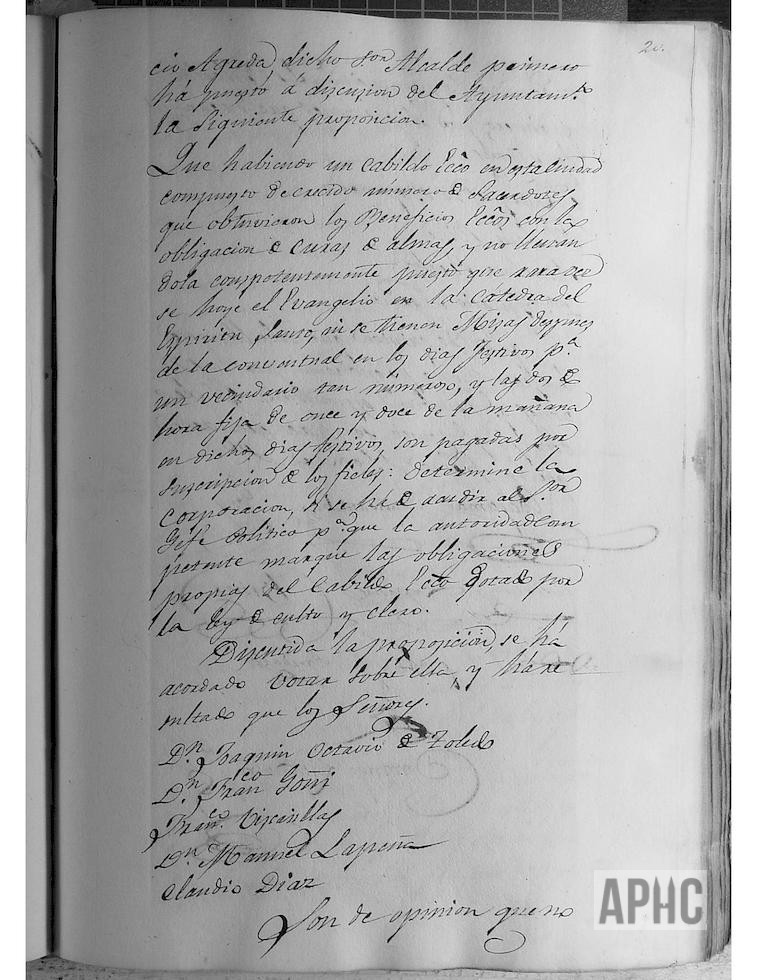 20.
cio Agreda dicho Sor Alcalde primero
ha puesto á discusion del Ayuntamto.
la siguiente proposicion.
Que habiendo un Cabildo Ecco en esta Ciudad
compuesto de crecido número de Sacerdotes,
que obtuvieron los Beneficios Eccos con la
obligacion de curas de almas, y no llenan
dola competentemente puesto que rara vez
se hoye el Evangelio en la Cátedra del
Espiritu Santo, ni se tienen Misas despues
de la conventual en los dias festivos pa.
un vecindario tan numeroso, y las dos de
hora fija de once y doce de la mañana
en dichos dias festivos, son pagadas por
suscripcion de los fieles: determine la
Corporacion, si se ha de acudir al Sor
Gefe Politico pa. que la autoridad com
petente marque las obligaciones
propias del Cabildo Ecco dotado por
la ley de culto y clero.
Discutida la proposicion, se ha
acordado votar sobre ella, y ha re
sultado que los Señores.
Dn. Joaquin Octavio de Toledo
Dn. Franco Goñi
Franco. Vizcanillas
Dn. Manuel Lapeña
Claudio Diaz
Son de opinion que no
APHC